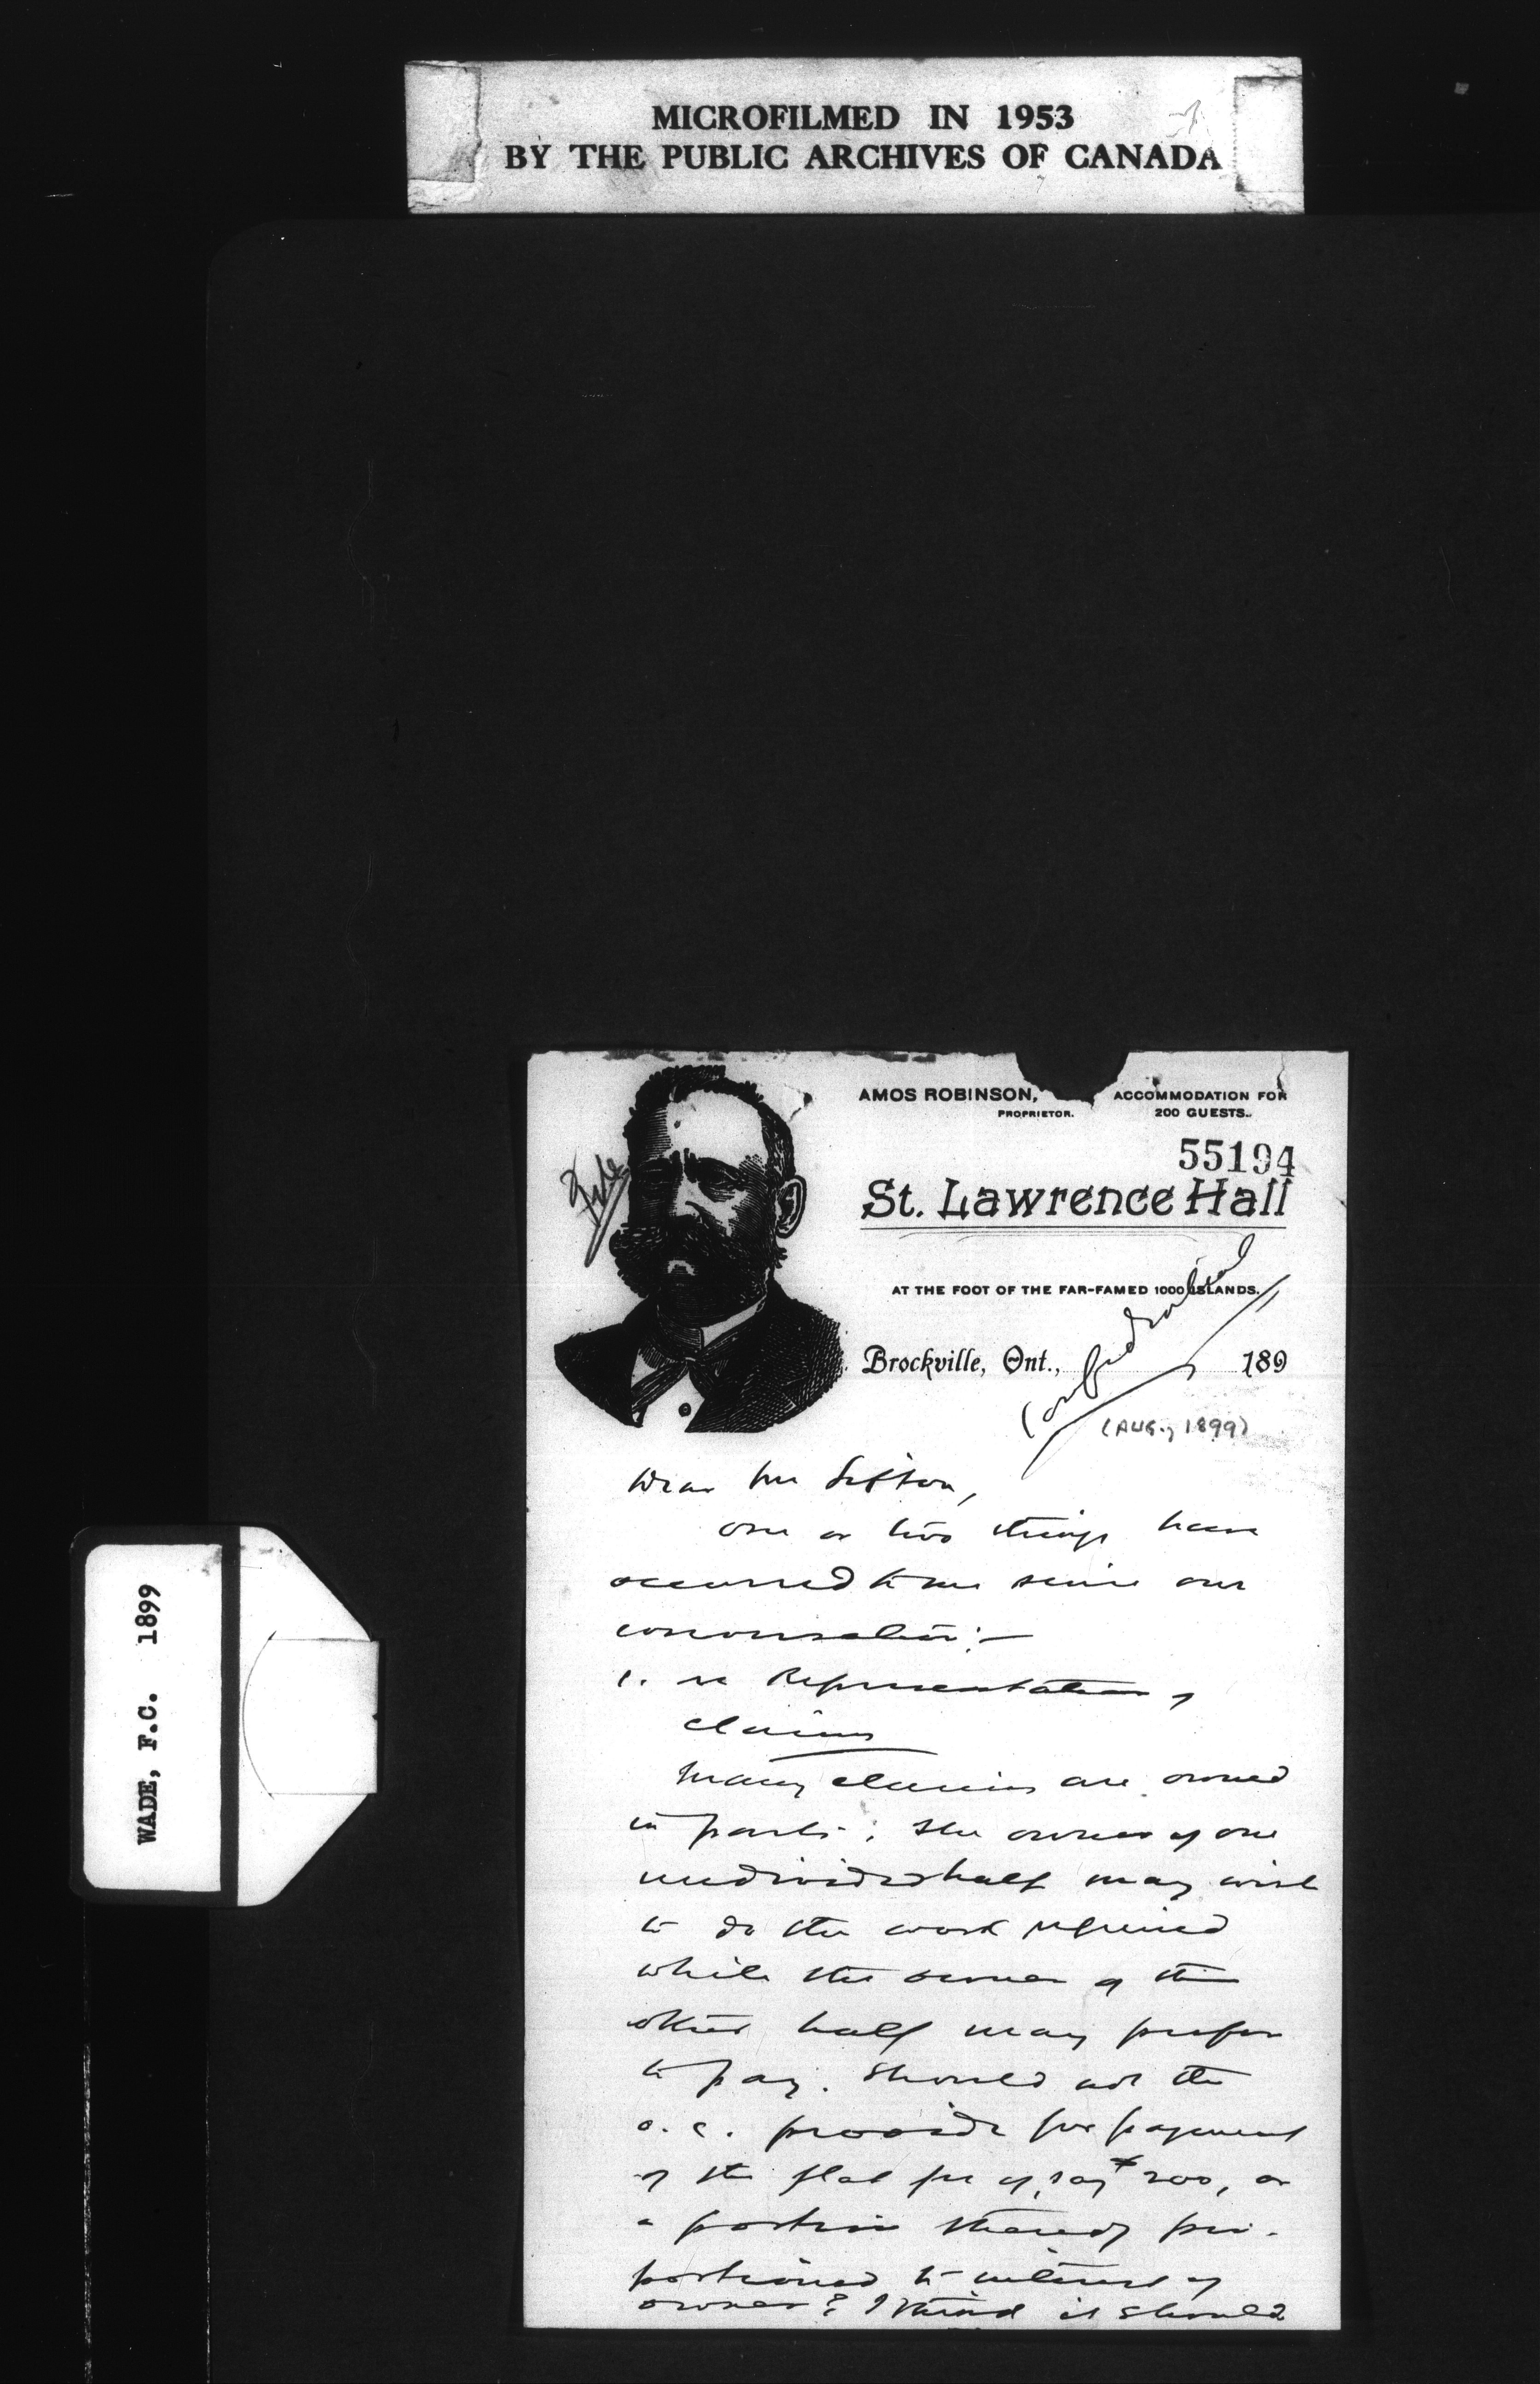 MICROFILMED IN 1953
BY THE PUBLIC ARCHIVES OF CANADA
WADE, F.C. 1899
AMOS ROBINSON,
PROPRIETOR.
ACCOMMODATION FOR
200 GUESTS.
55194
St. Lawrence Hall
File
AT THE FOOT OF THE FAR-FAMED 1000 ISLANDS.
Confidential
Brockville, Ont., 189
(AUG., 1899)
Dear Mr Sifton,
One or two things have
occurred to me since our
conversation:—
1. re Representation of
claims
Many claims are owned
in parts. The owner of one
undivided half may wish
to do the work required
while the owner of the
other half may prefer
to pay. Should not the
O.C. provide for payment
of the flat fee of, say $200, or
a portion thereof pro-
portioned to interest of
owner? I think it should